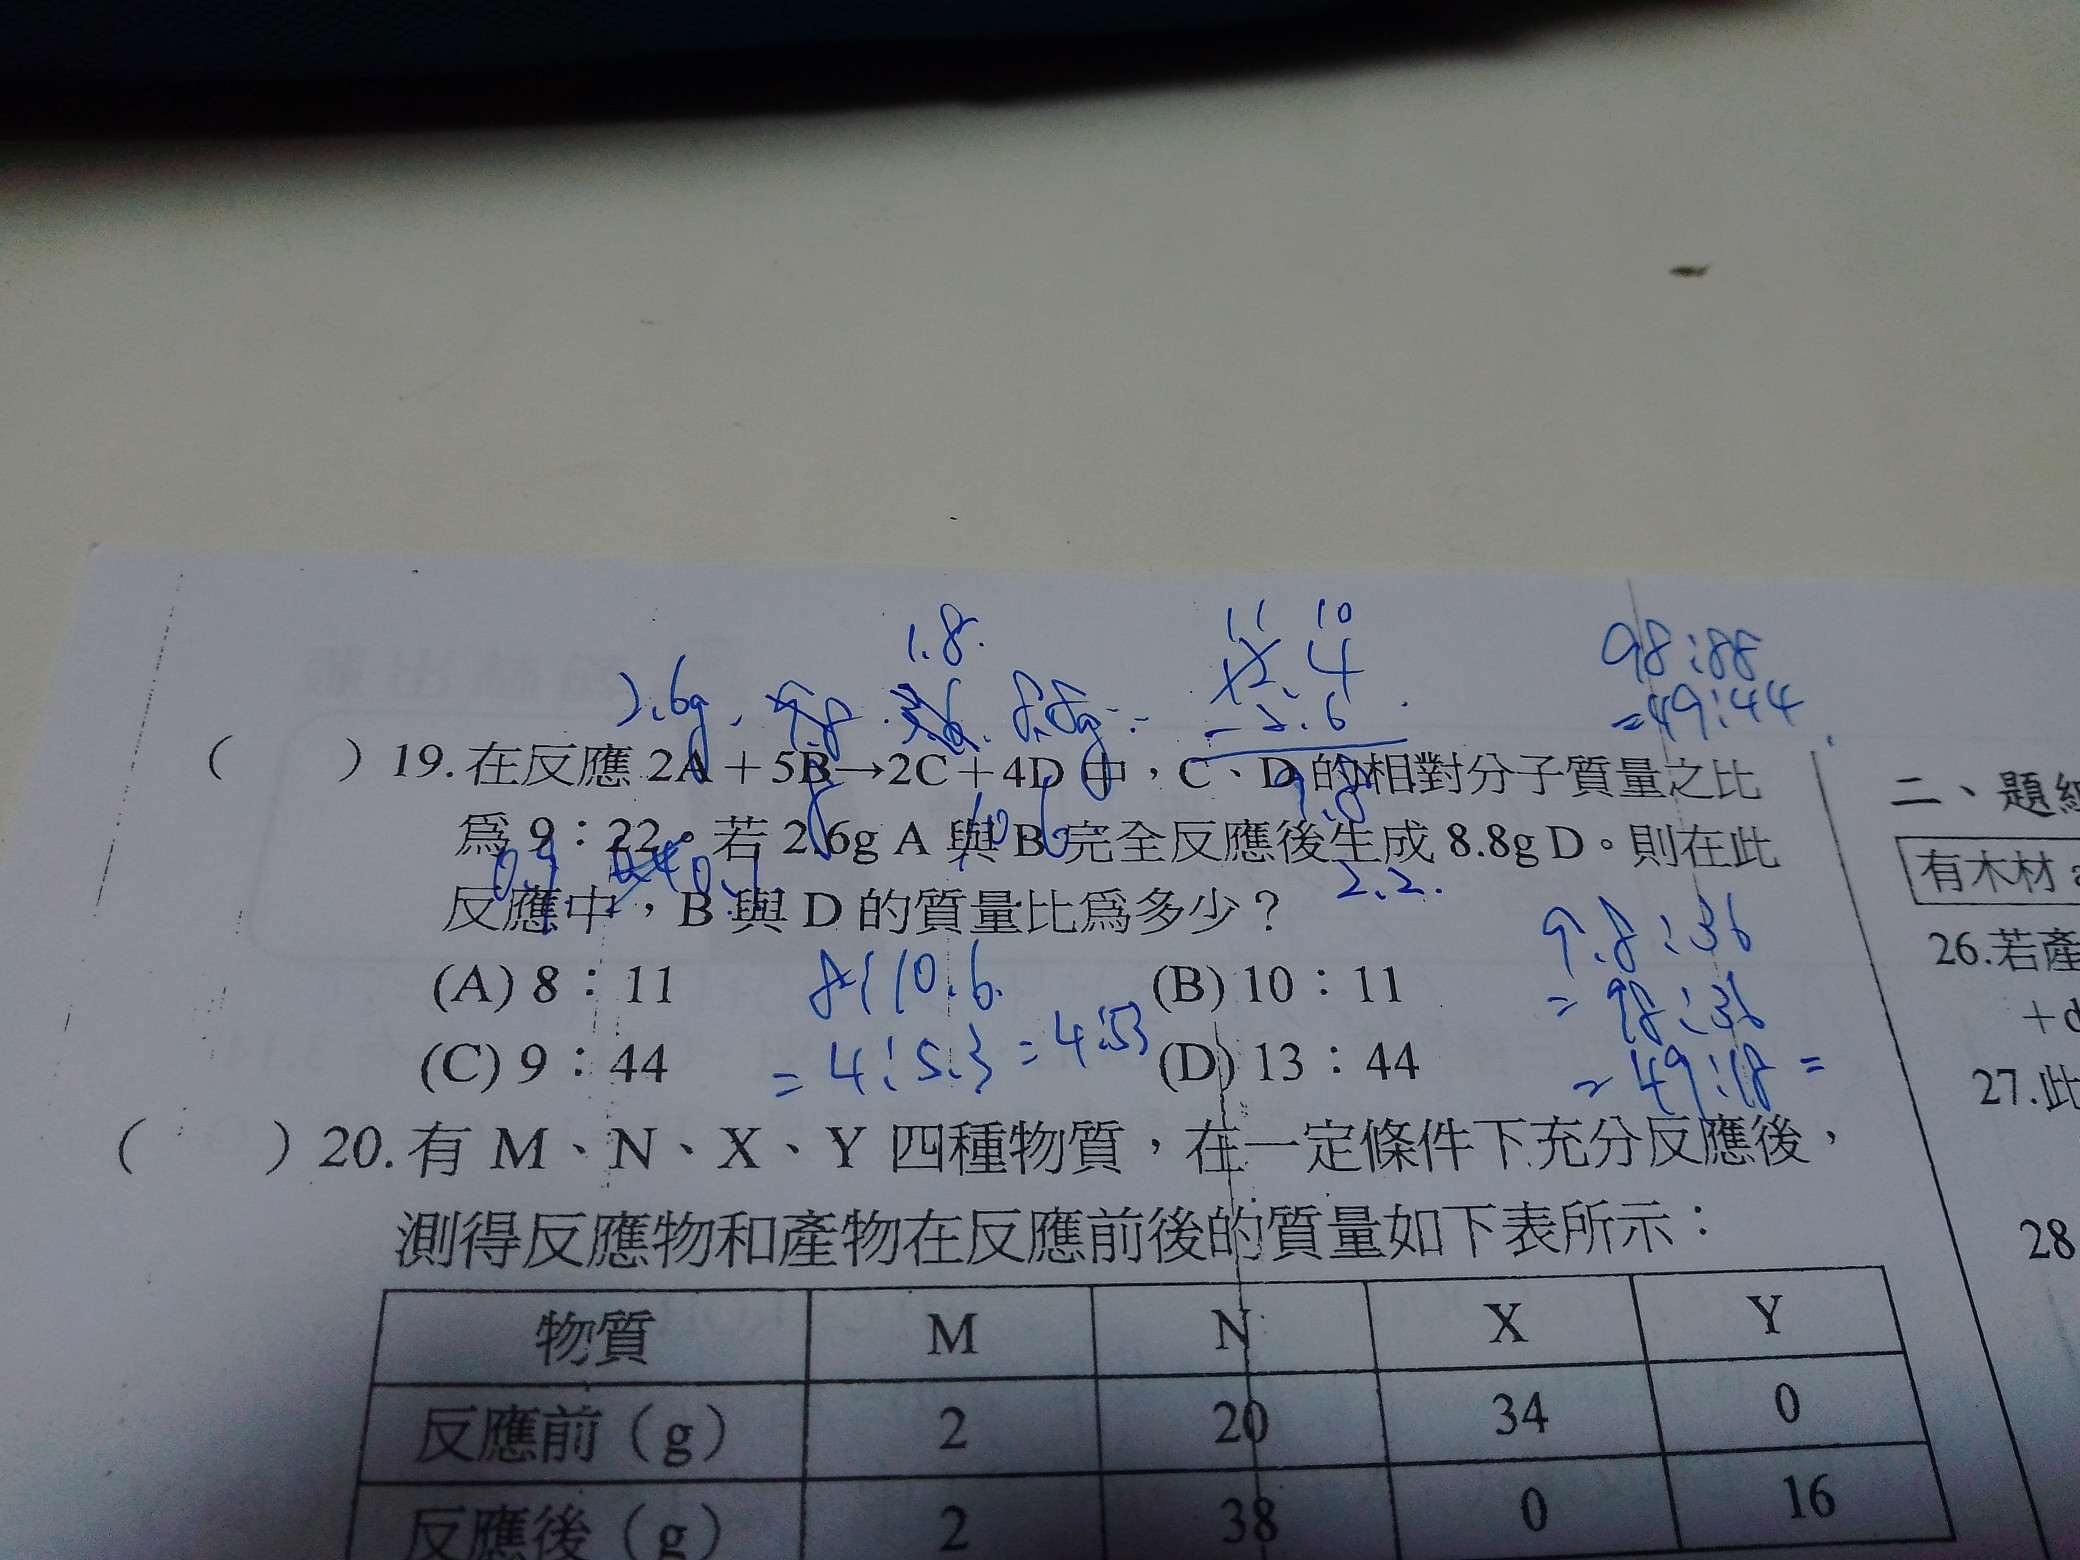 1.8.
11 10
12.4
98:88
=49:44
2.6g. 8.8g
- 2.6
( ) 19. 在反應 2A＋5B→2C＋4D 中，C、D 的相對分子質量之比
9.8
為 9：22。若 2.6g A 與 B 完全反應後生成 8.8g D。則在此
2.2.
反應中，B 與 D 的質量比為多少？
9.8:36
(A) 8：11
8:10.6
(B) 10：11
= 98:36
(C) 9：44
= 4:5.3 = 4:53
(D) 13：44
= 49:18 =
( ) 20. 有 M、N、X、Y 四種物質，在一定條件下充分反應後，
測得反應物和產物在反應前後的質量如下表所示：
物質 M N X Y
反應前（g） 2 20 34 0
反應後（g） 2 38 0 16
二、題
有木材
26.若產
27.此
28